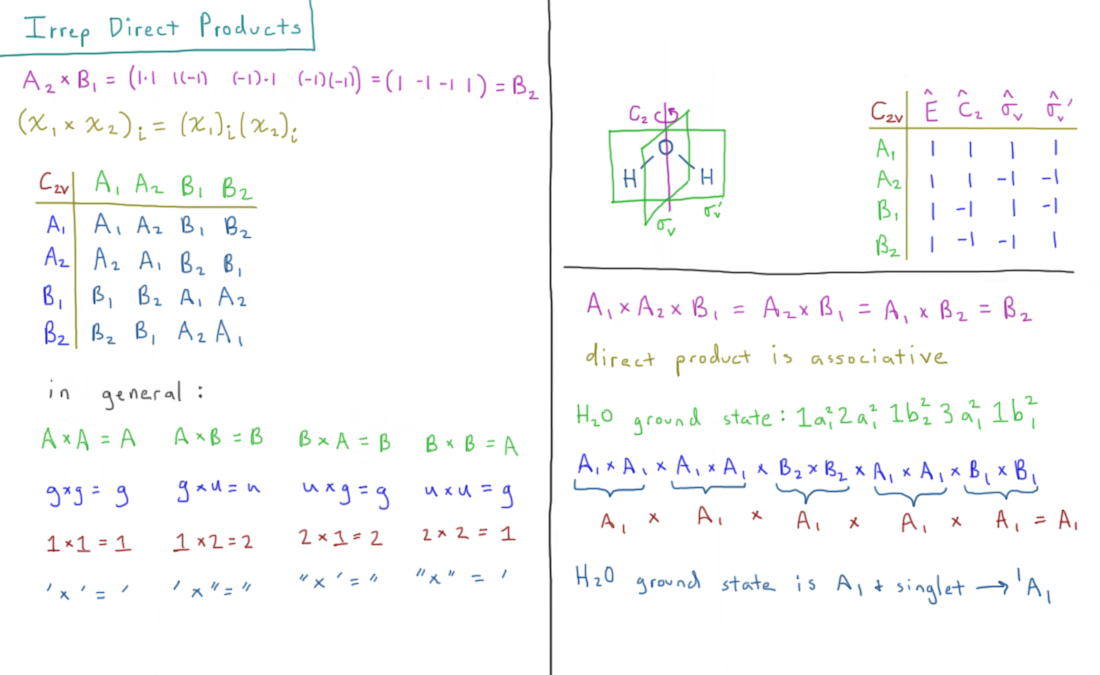 Irrep Direct Products
A₂ × B₁ = (1·1 1(-1) (-1)·1 (-1)(-1)) = (1 -1 -1 1) = B₂
(χ₁ × χ₂)ᵢ = (χ₁)ᵢ(χ₂)ᵢ
C₂ᵥ A₁ A₂ B₁ B₂
A₁ A₁ A₂ B₁ B₂
A₂ A₂ A₁ B₂ B₁
B₁ B₁ B₂ A₁ A₂
B₂ B₂ B₁ A₂ A₁
in general :
A × A = A A × B = B B × A = B B × B = A
g × g = g g × u = u u × g = g u × u = g
1 × 1 = 1 1 × 2 = 2 2 × 1 = 2 2 × 2 = 1
' × ' = ' ' × " = " " × ' = " " × " = '
C₂
O
H H
σᵥ σᵥ'
C₂ᵥ Ê Ĉ₂ σ̂ᵥ σ̂ᵥ'
A₁ 1 1 1 1
A₂ 1 1 -1 -1
B₁ 1 -1 1 -1
B₂ 1 -1 -1 1
A₁ × A₂ × B₁ = A₂ × B₁ = A₁ × B₂ = B₂
direct product is associative
H₂O ground state : 1a₁² 2a₁² 1b₂² 3a₁² 1b₁²
A₁ × A₁ × A₁ × A₁ × B₂ × B₂ × A₁ × A₁ × B₁ × B₁
A₁ × A₁ × A₁ × A₁ × A₁ = A₁
H₂O ground state is A₁ + singlet → ¹A₁